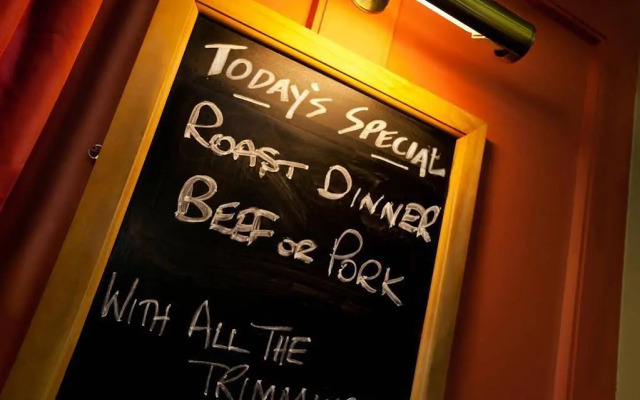 TODAY'S SPECIAL
ROAST DINNER
BEEF OR PORK
WITH ALL THE